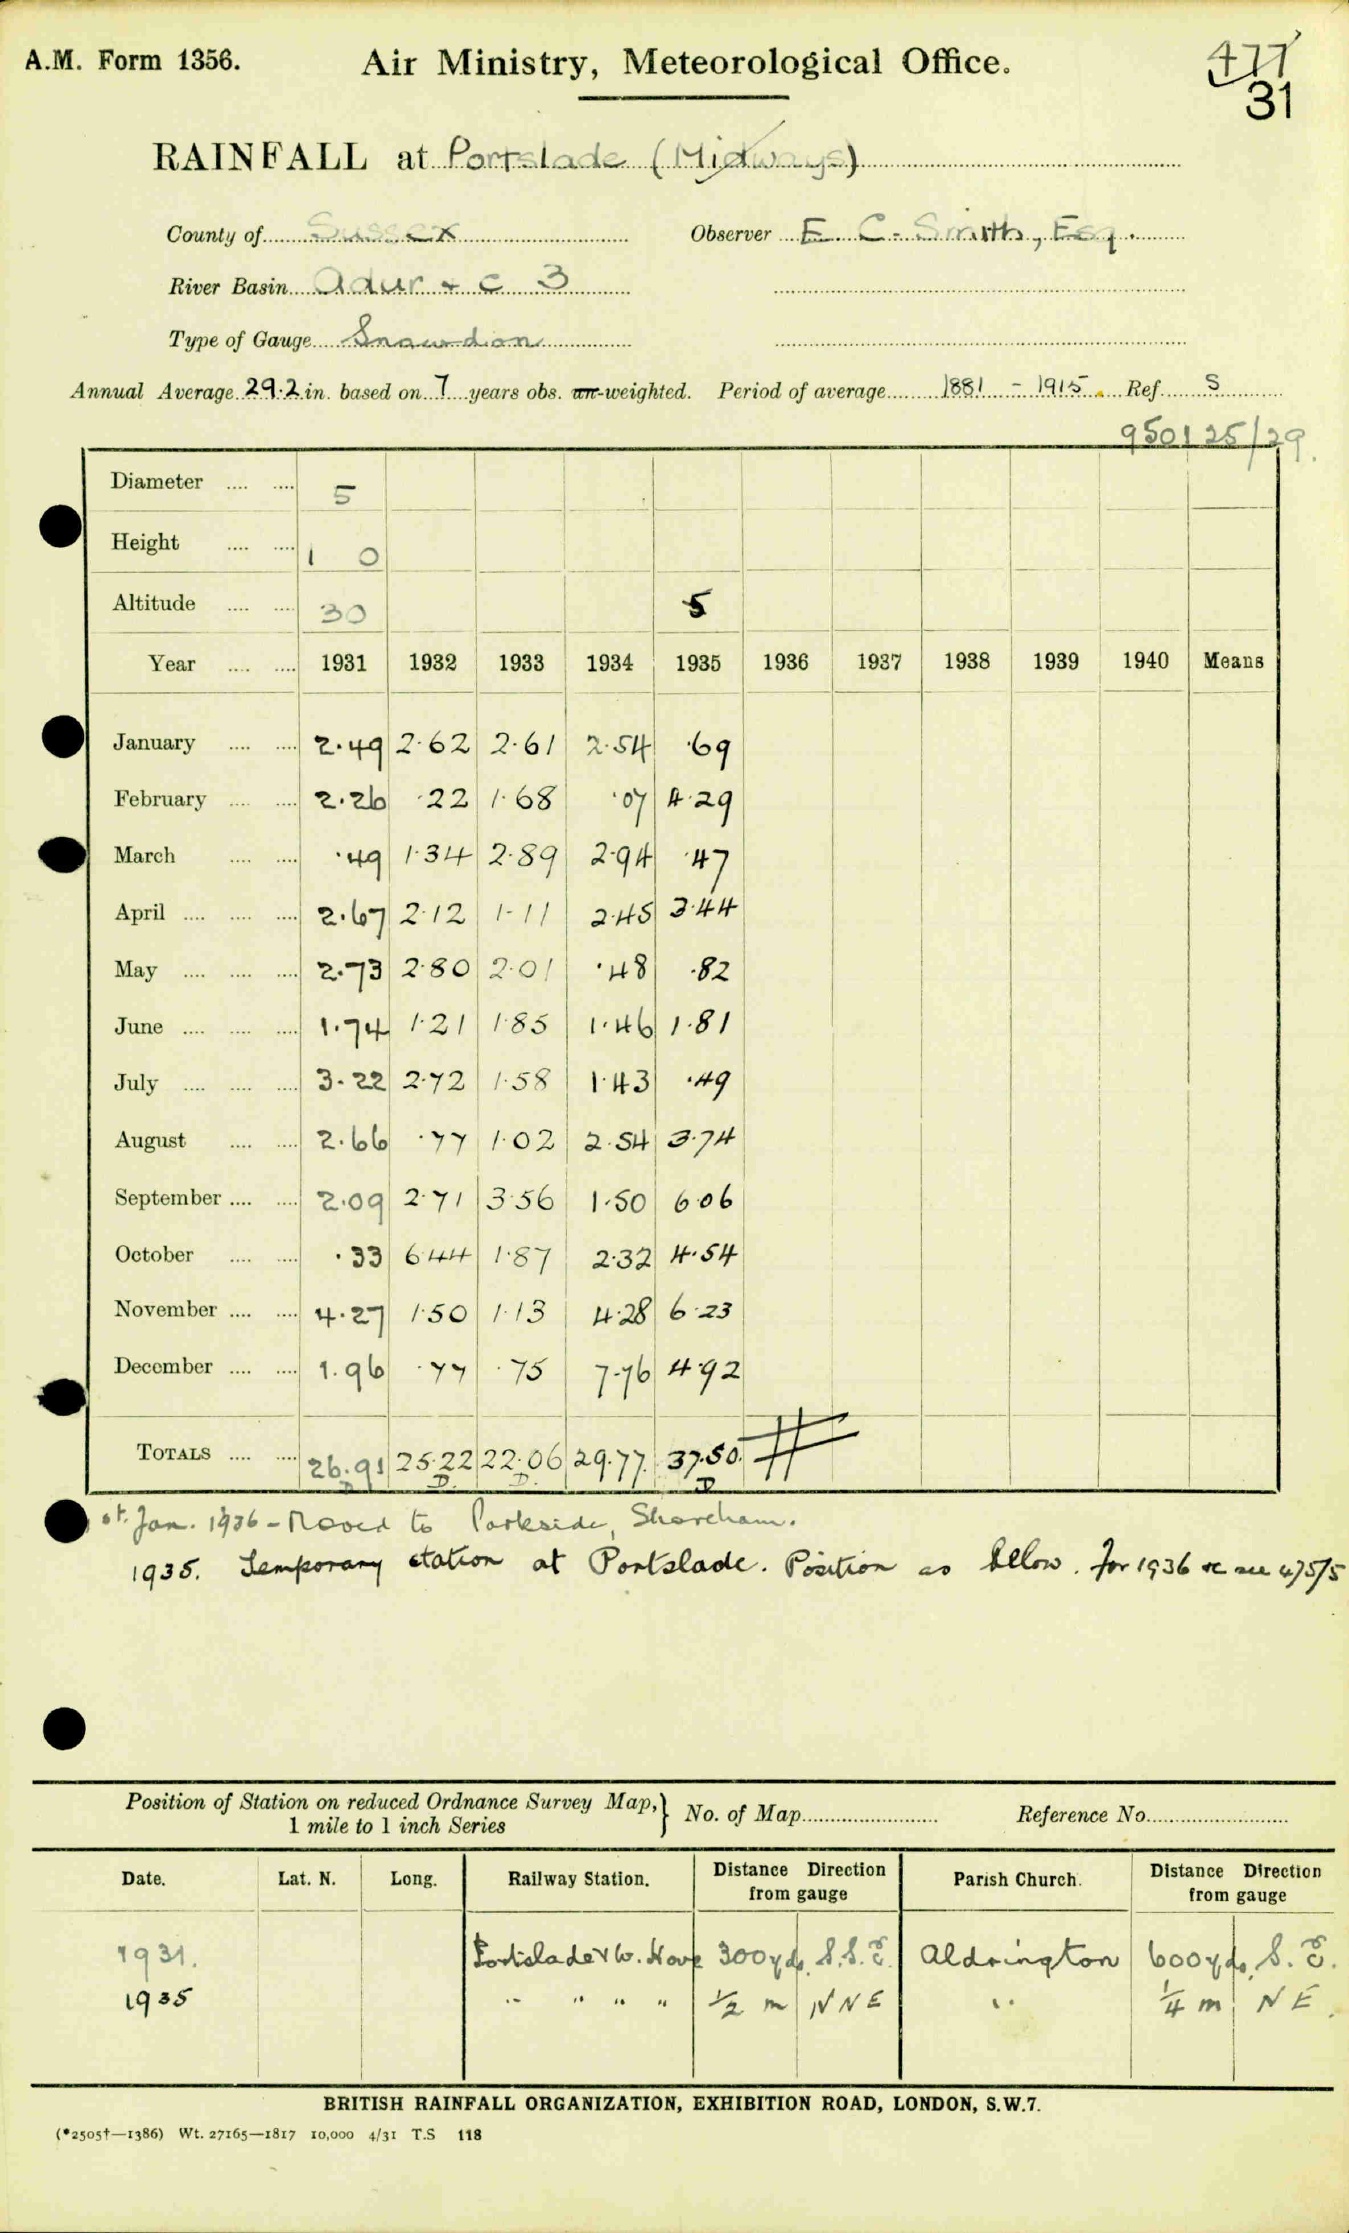 A.M. Form 1356.
Air Ministry, Meteorological Office.
477
31
RAINFALL at Portslade (Midways)
County of Sussex Observer E. C. Smith, Esq.
River Basin Adur & C 3
Type of Gauge Snowdon
Annual Average 29.2 in. based on 7 years obs. un-weighted. Period of average 1881 - 1915. Ref. S
950125/29.
Diameter .... .... 5
Height .... .... 1 0
Altitude .... .... 30 5
Year .... .... 1931 1932 1933 1934 1935 1936 1937 1938 1939 1940 Means
January .... .... 2.49 2.62 2.61 2.54 .69
February .... .... 2.26 .22 1.68 .07 4.29
March .... .... .49 1.34 2.89 2.94 .47
April .... .... .... 2.67 2.12 1.11 2.45 3.44
May .... .... .... 2.73 2.80 2.01 .48 .82
June .... .... .... 1.74 1.21 1.85 1.46 1.81
July .... .... .... 3.22 2.72 1.58 1.43 .49
August .... .... 2.66 .77 1.02 2.54 3.74
September .... .... 2.09 2.71 3.56 1.50 6.06
October .... .... .33 6.44 1.87 2.32 4.54
November .... .... 4.27 1.50 1.13 4.28 6.23
December .... .... 1.96 .77 .75 7.76 4.92
TOTALS .... .... 26.91 25.22 22.06 29.77 37.50
D D. D. D
st. Jan. 1936 - Moved to Parkside, Shoreham.
1935. Temporary station at Portslade. Position as below. for 1936 &c see 475/5
Position of Station on reduced Ordnance Survey Map, } No. of Map Reference No.
1 mile to 1 inch Series
Date. Lat. N. Long. Railway Station. Distance Direction from gauge Parish Church. Distance Direction from gauge
1931. Portslade & W. Hove 300 yds. S.S.E. Aldrington 600 yds. S. E.
1935 " " " " 1/2 m NNE " 1/4 m NE.
BRITISH RAINFALL ORGANIZATION, EXHIBITION ROAD, LONDON, S.W.7.
(*2505†—1386) Wt. 27165—1817 10,000 4/31 T.S 118